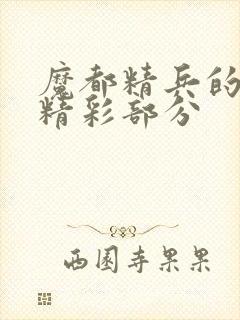 魔都精兵的
精彩部分
西园寺果果